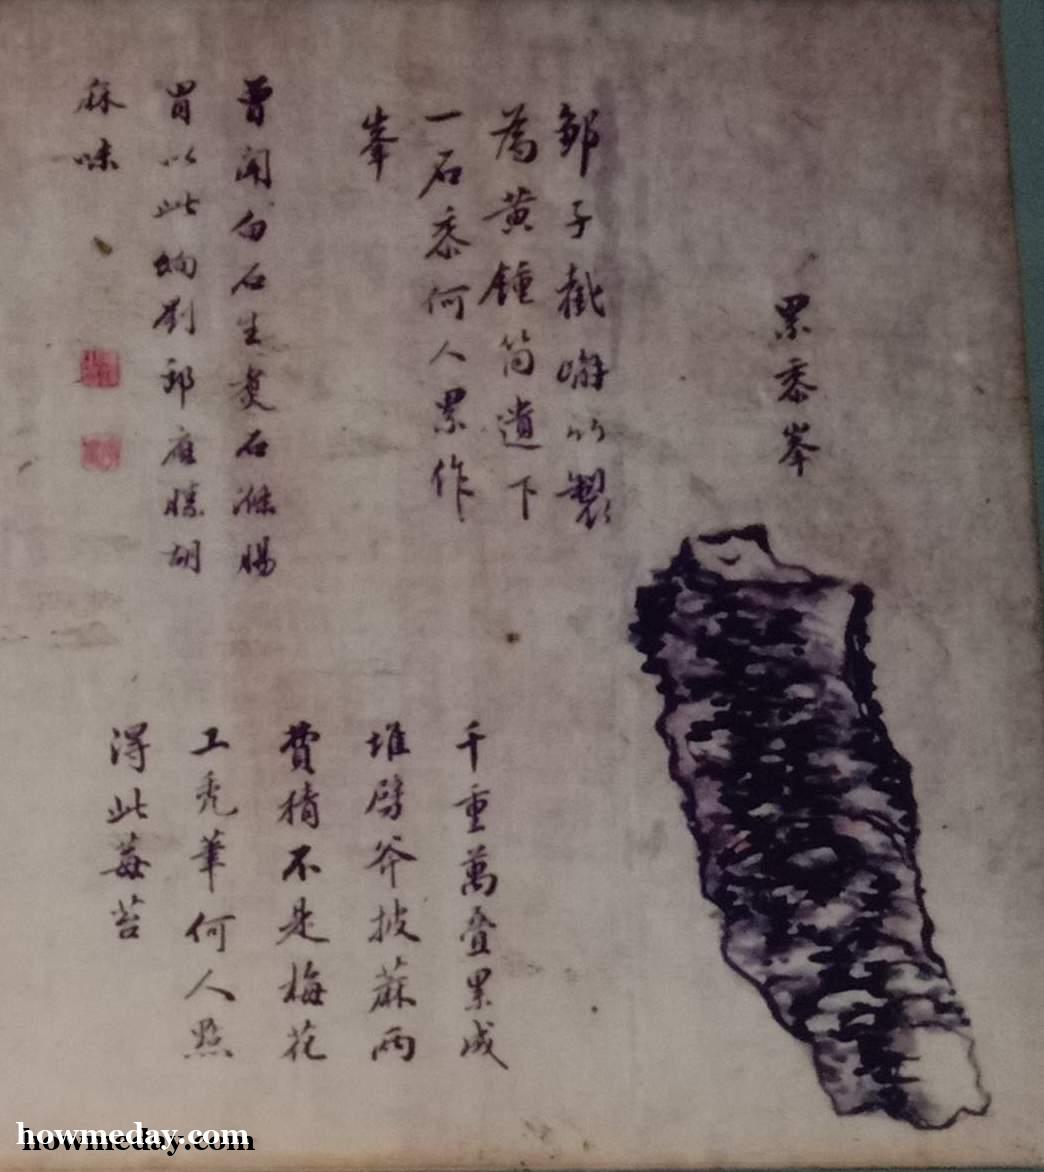 累黍峯
鄒子截嶰竹製
為黄鍾筒遺下
一石黍何人累作
峯
曾聞白石生煮石滌腸
胃以此餉劉郎應勝胡
麻味
千重萬叠累成
堆劈斧披蔴兩
費猜不是梅花
工秃筆何人點
得此莓苔
howmeday.com